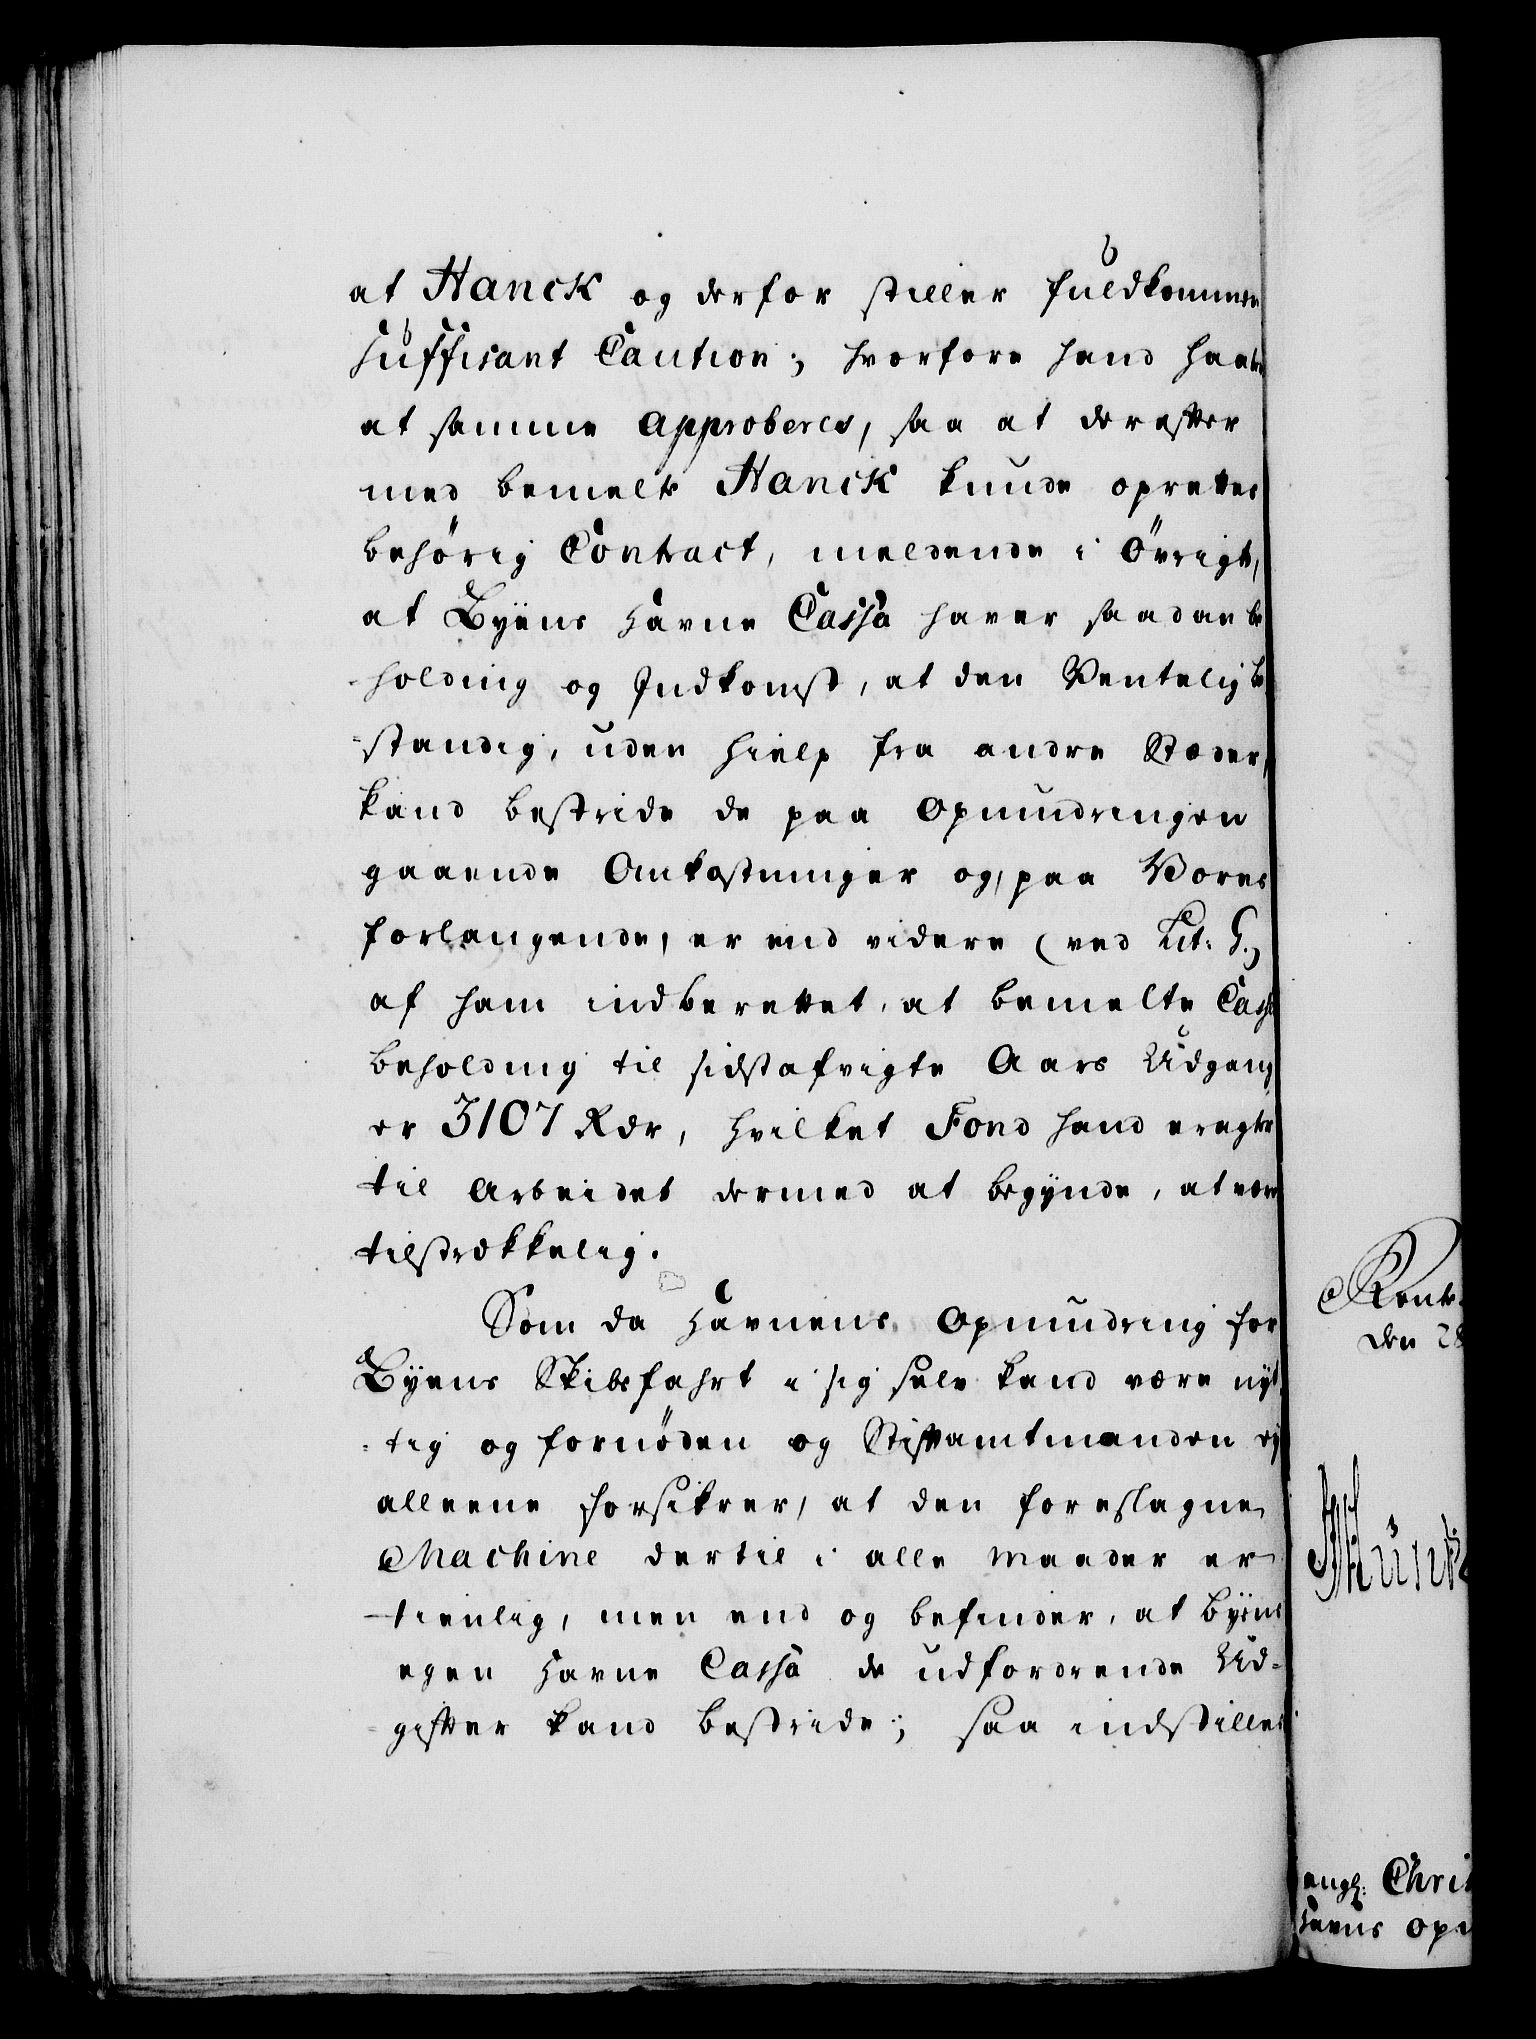 at Hanck og derfor stiller fuldkommen
suffisant Caution; hvorfore hand haaber
at samme approberes, saa at derefter
med bemelte Hanck kunde oprettes
behörig Contract, meldende i Övrigt,
at Byens Havne Cassa haver saadan be
holding og Indkomst, at den Ventelig be
standig, uden hielp fra andre Stæder,
kand bestride de paa Opmudringen
gaaende Omkostninger og, paa Vores
forlangende, er end videre (ved Lit: G.)
af ham indberettet, at bemelte Cassæ
beholding til sidstafvigte Aars Udgang
er 3107 Rdr, hvilket Fond hand eragter
til Arbeidet dermed at begynde, at være
tilstrekkelig.
Som da Havnens Opmudring for
Byens Skibsfahrt i sig selv kand være nyt
tig og fornöden og Stiftamtmanden ey
alleene forsikrer, at den foreslagne
Machine dertil i alle Maader er
tienlig, men end og befinder, at Byens
egen Havne Cassa de udfordrende Ud-
gifter kand bestride; saa indstilles
Rente
den 28
Chri
Havns opm